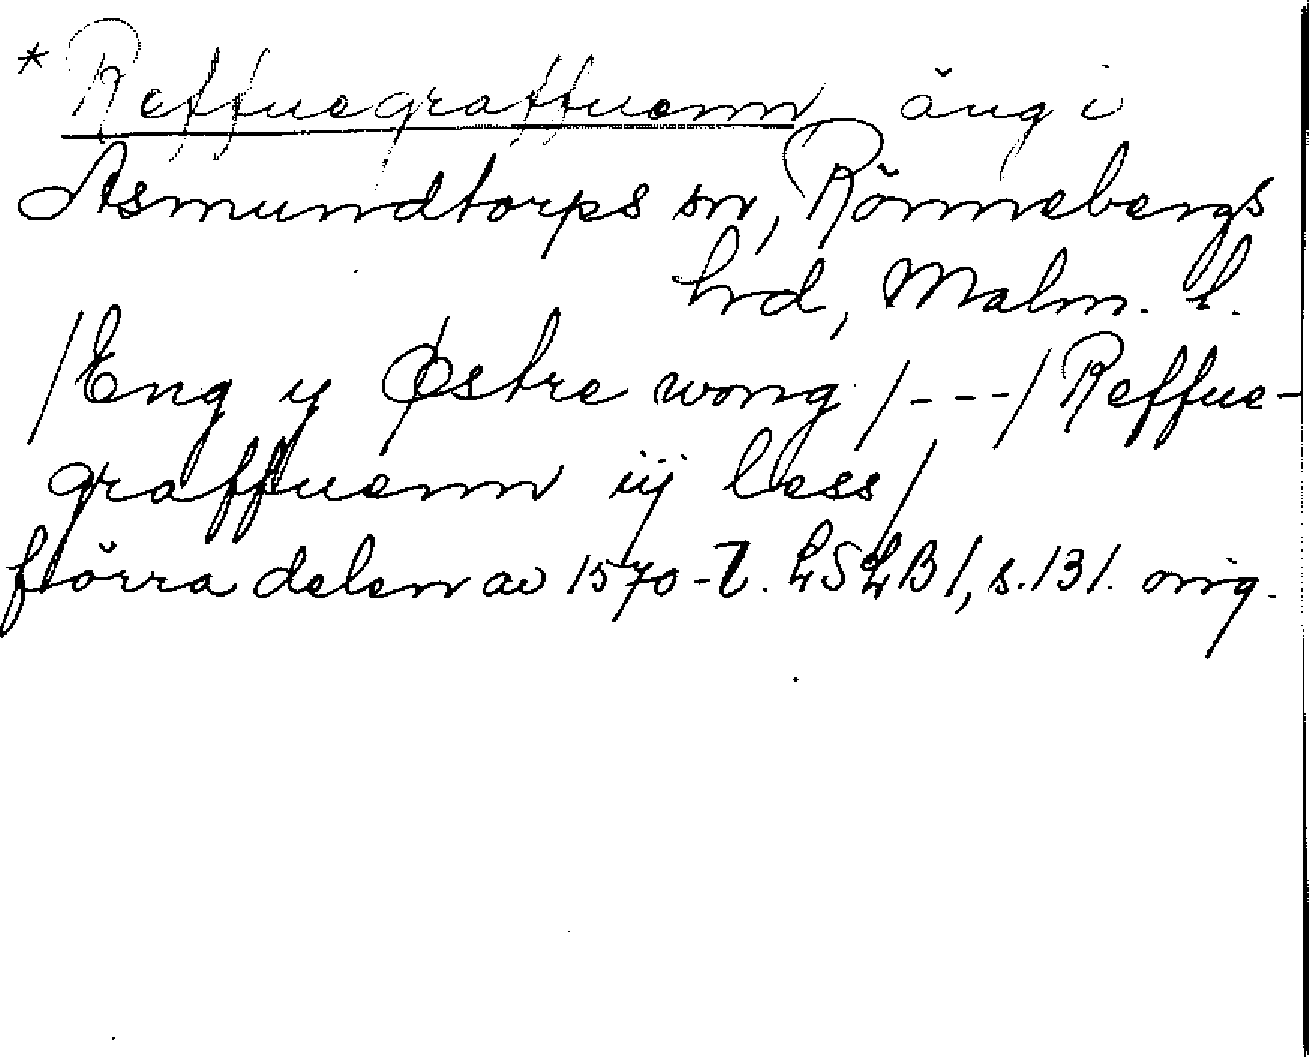 * Reffuegraffuenn äng i
Asmundtorps sn, Rönnebergs
hrd, Malm. l.
/Eng y Østre wong /---/ Reffue-
graffuenn iij less/
förra delen av 1570-t. LSLB 1, s. 131. orig.